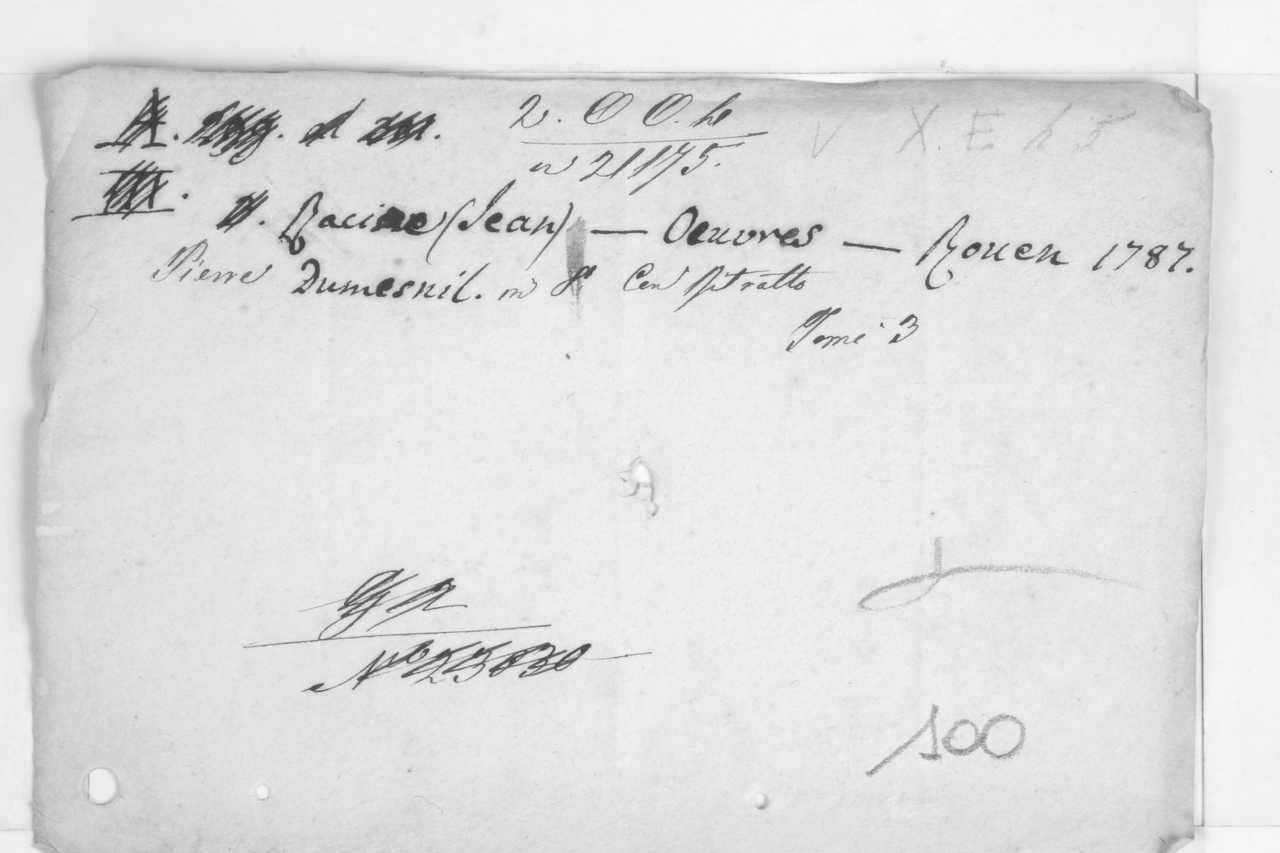 2. O O. h
n 21175.
V X. E h 5
Racine (Jean) — Oeuvres — Rouen 1787.
Pierre Dumesnil. in 8° Con Ritratto
Tomi 3
N° 23830
100